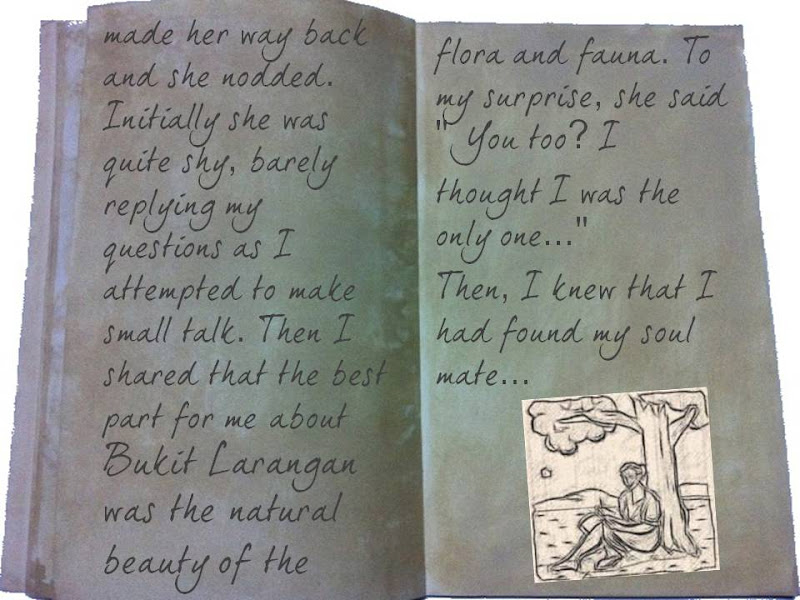 made her way back
and she nodded.
Initially she was
quite shy, barely
replying my
questions as I
attempted to make
small talk. Then I
shared that the best
part for me about
Bukit Larangan
was the natural
beauty of the
flora and fauna. To
my surprise, she said
" You too? I
thought I was the
only one..."
Then, I knew that I
had found my soul
mate...